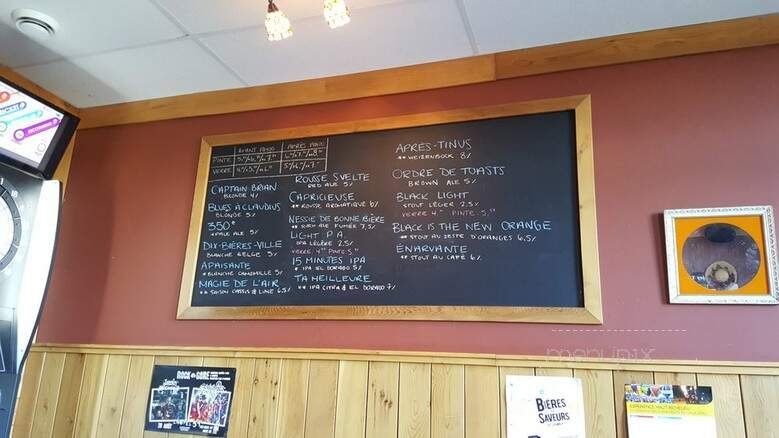 AVANT 17H00 APRÈS 17H00
PINTE
VERRE
CAPTAIN BRIAN
BLONDE 4%
BLUES À CLAUDIUS
BLONDE 5%
350°
* PALE ALE 5%
DIX-BIÈRES-VILLE
BLANCHE BELGE 5%
APAISANTE
* BLANCHE CAMOMILLE 5%
MAGIE DE L'AIR
** SAISON CASSIS & LIME 6.5%
ROUSSE SVELTE
RED ALE 5%
CAPRICIEUSE
** ROUSSE AROMATIQUE 6%
NESSIE DE BONNE BIÈRE
ALE FUMÉE 7,5%
LIGHT P.A.
IPA LÉGÈRE 2.5%
VERRE 4.00 PINTE 5.00
15 MINUTES IPA
* IPA EL DORADO 5%
TA MEILLEURE
** IPA CITRA & EL DORADO 7%
APRÈS-TINUS
** WEIZENBOCK 8%
ORDRE DE TOASTS
BROWN ALE 5%
BLACK LIGHT
STOUT LÉGER 2.5%
VERRE 4.00 PINTE 5.00
BLACK IS THE NEW ORANGE
** STOUT AU ZESTE D'ORANGES 6.5%
ÉNARVANTE
** STOUT AU CAFÉ 6%
ROCK LA CÔTE
BIÈRES
SAVEURS
menupix